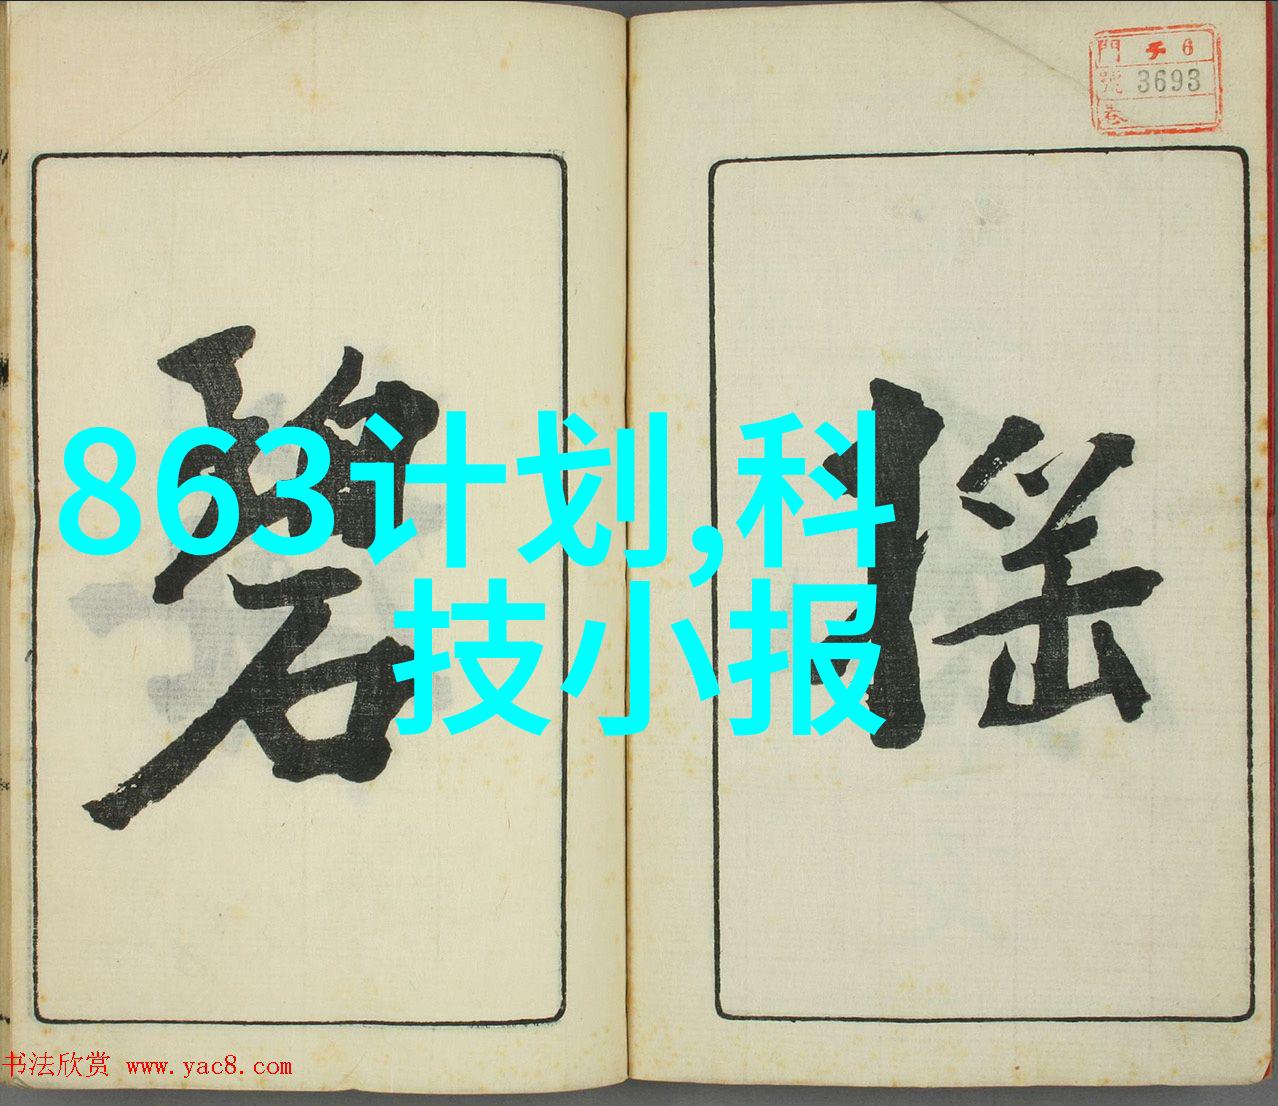 門 チ 6
號 3693
巻
搖
碧
863计划,科
技小报
书法欣赏 www.yac8.com